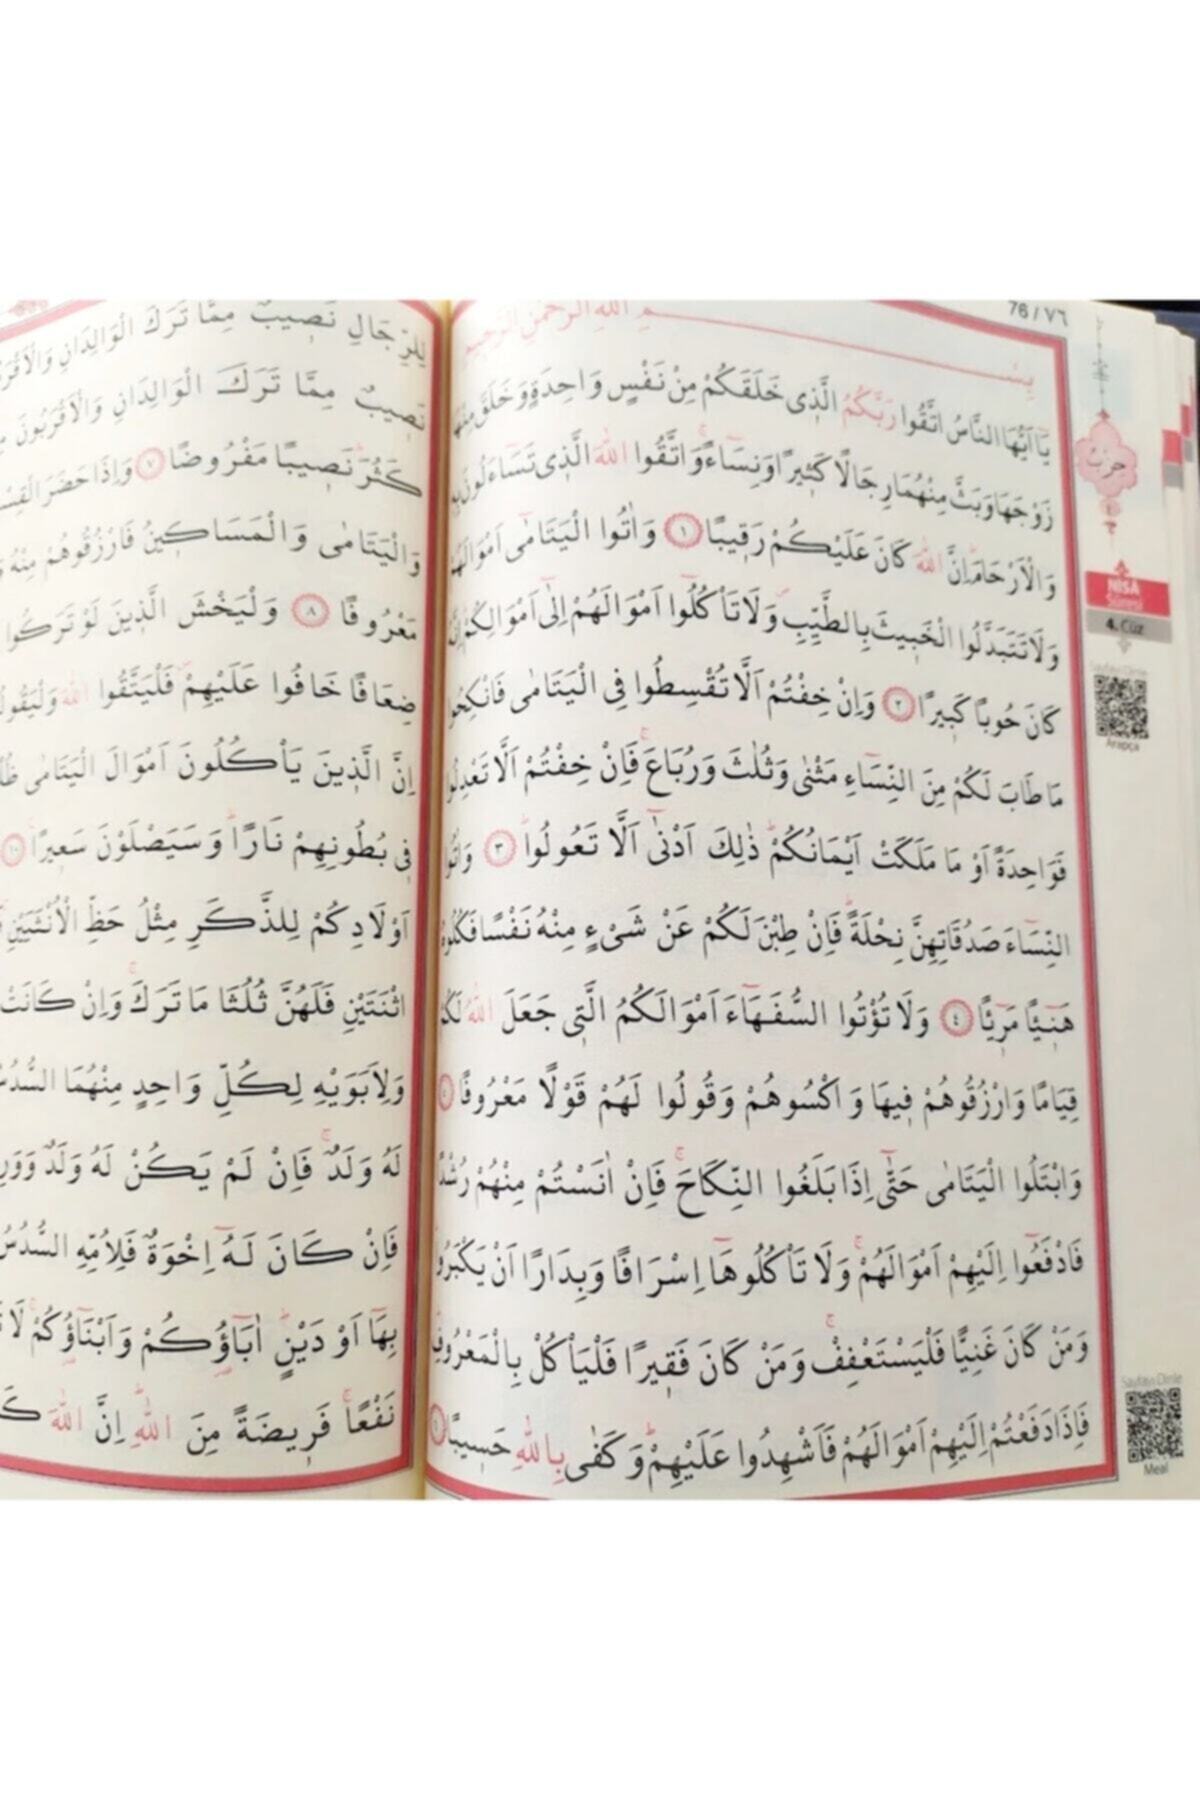 76 / ٧٦
بِسْمِ اللّٰهِ الرَّحْمٰنِ الرَّحِيمِ
يَٓا اَيُّهَا النَّاسُ اتَّقُوا رَبَّكُمُ الَّذ۪ى خَلَقَكُمْ مِنْ نَفْسٍ وَاحِدَةٍ وَخَلَقَ مِنْهَا
زَوْجَهَا وَبَثَّ مِنْهُمَا رِجَالًا كَث۪يرًا وَنِسَٓاءًۚ وَاتَّقُوا اللّٰهَ الَّذ۪ى تَسَٓاءَلُونَ بِه۪
وَالْاَرْحَامَۜ اِنَّ اللّٰهَ كَانَ عَلَيْكُمْ رَق۪يبًا ﴿١﴾ وَاٰتُوا الْيَتَامٰٓى اَمْوَالَهُمْ
وَلَا تَتَبَدَّلُوا الْخَب۪يثَ بِالطَّيِّبِۖ وَلَا تَأْكُلُٓوا اَمْوَالَهُمْ اِلٰٓى اَمْوَالِكُمْۜ اِنَّهُ
كَانَ حُوبًا كَب۪يرًا ﴿٢﴾ وَاِنْ خِفْتُمْ اَلَّا تُقْسِطُوا فِى الْيَتَامٰى فَانْكِحُوا
مَا طَابَ لَكُمْ مِنَ النِّسَٓاءِ مَثْنٰى وَثُلٰثَ وَرُبَاعَۚ فَاِنْ خِفْتُمْ اَلَّا تَعْدِلُوا
فَوَاحِدَةً اَوْ مَا مَلَكَتْ اَيْمَانُكُمْۜ ذٰلِكَ اَدْنٰٓى اَلَّا تَعُولُواۜ ﴿٣﴾ وَاٰتُوا
النِّسَٓاءَ صَدُقَاتِهِنَّ نِحْلَةًۜ فَاِنْ طِبْنَ لَكُمْ عَنْ شَىْءٍ مِنْهُ نَفْسًا فَكُلُوهُ
هَن۪ٓيـًٔا مَر۪ٓيـًٔا ﴿٤﴾ وَلَا تُؤْتُوا السُّفَهَٓاءَ اَمْوَالَكُمُ الَّت۪ى جَعَلَ اللّٰهُ لَكُمْ
قِيَامًا وَارْزُقُوهُمْ ف۪يهَا وَاكْسُوهُمْ وَقُولُوا لَهُمْ قَوْلًا مَعْرُوفًا ﴿٥﴾
وَابْتَلُوا الْيَتَامٰى حَتّٰٓى اِذَا بَلَغُوا النِّكَاحَۚ فَاِنْ اٰنَسْتُمْ مِنْهُمْ رُشْدًا
فَادْفَعُٓوا اِلَيْهِمْ اَمْوَالَهُمْۚ وَلَا تَأْكُلُوهَٓا اِسْرَافًا وَبِدَارًا اَنْ يَكْبَرُوا
وَمَنْ كَانَ غَنِيًّا فَلْيَسْتَعْفِفْۚ وَمَنْ كَانَ فَق۪يرًا فَلْيَأْكُلْ بِالْمَعْرُوفِۜ
فَاِذَا دَفَعْتُمْ اِلَيْهِمْ اَمْوَالَهُمْ فَاَشْهِدُوا عَلَيْهِمْۜ وَكَفٰى بِاللّٰهِ حَس۪يبًا ﴿٦﴾
حزب
NİSA
Sûresi
4. Cüz
Sayfayı Dinle
Arapça
Sayfayı Dinle
Meal
لِلرِّجَالِ نَص۪يبٌ مِمَّا تَرَكَ الْوَالِدَانِ
نَص۪يبٌ مِمَّا تَرَكَ الْوَالِدَانِ وَالْاَقْرَبُونَ
كَثُرَۜ نَص۪يبًا مَفْرُوضًا ﴿٧﴾ وَاِذَا حَضَرَ
وَالْيَتَامٰى وَالْمَسَاك۪ينُ فَارْزُقُوهُمْ مِنْهُ
مَعْرُوفًا ﴿٨﴾ وَلْيَخْشَ الَّذ۪ينَ لَوْ تَرَكُوا
ضِعَافًا خَافُوا عَلَيْهِمْۖ فَلْيَتَّقُوا اللّٰهَ
اِنَّ الَّذ۪ينَ يَأْكُلُونَ اَمْوَالَ الْيَتَامٰى
ف۪ى بُطُونِهِمْ نَارًاۜ وَسَيَصْلَوْنَ سَع۪يرًا۟ ﴿١٠﴾
اَوْلَادِكُمْ لِلذَّكَرِ مِثْلُ حَظِّ الْاُنْثَيَيْنِۚ
اثْنَتَيْنِ فَلَهُنَّ ثُلُثَا مَا تَرَكَۚ وَاِنْ كَانَتْ
وَلِاَبَوَيْهِ لِكُلِّ وَاحِدٍ مِنْهُمَا
لَهُ وَلَدٌۚ فَاِنْ لَمْ يَكُنْ لَهُ وَلَدٌ
فَاِنْ كَانَ لَهُٓ اِخْوَةٌ فَلِاُمِّهِ السُّدُسُ
بِهَٓا اَوْ دَيْنٍۜ اٰبَٓاؤُ۬كُمْ وَاَبْنَٓاؤُ۬كُمْۚ لَا
نَفْعًاۚ فَر۪يضَةً مِنَ اللّٰهِۜ اِنَّ اللّٰهَ